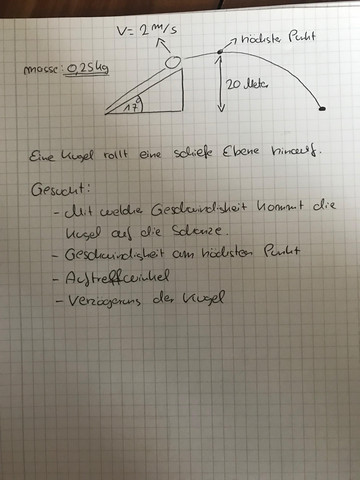 V = 2 m/s
höchster Punkt
masse: 0,25kg
20 Meter
17°
Eine Kugel rollt eine schiefe Ebene hinauf.
Gesucht:
- Mit welche Geschwindigkeit kommt die
Kugel auf die Schanze.
- Geschwindigkeit am höchsten Punkt
- Auftreffwinkel
- Verzögerung der Kugel